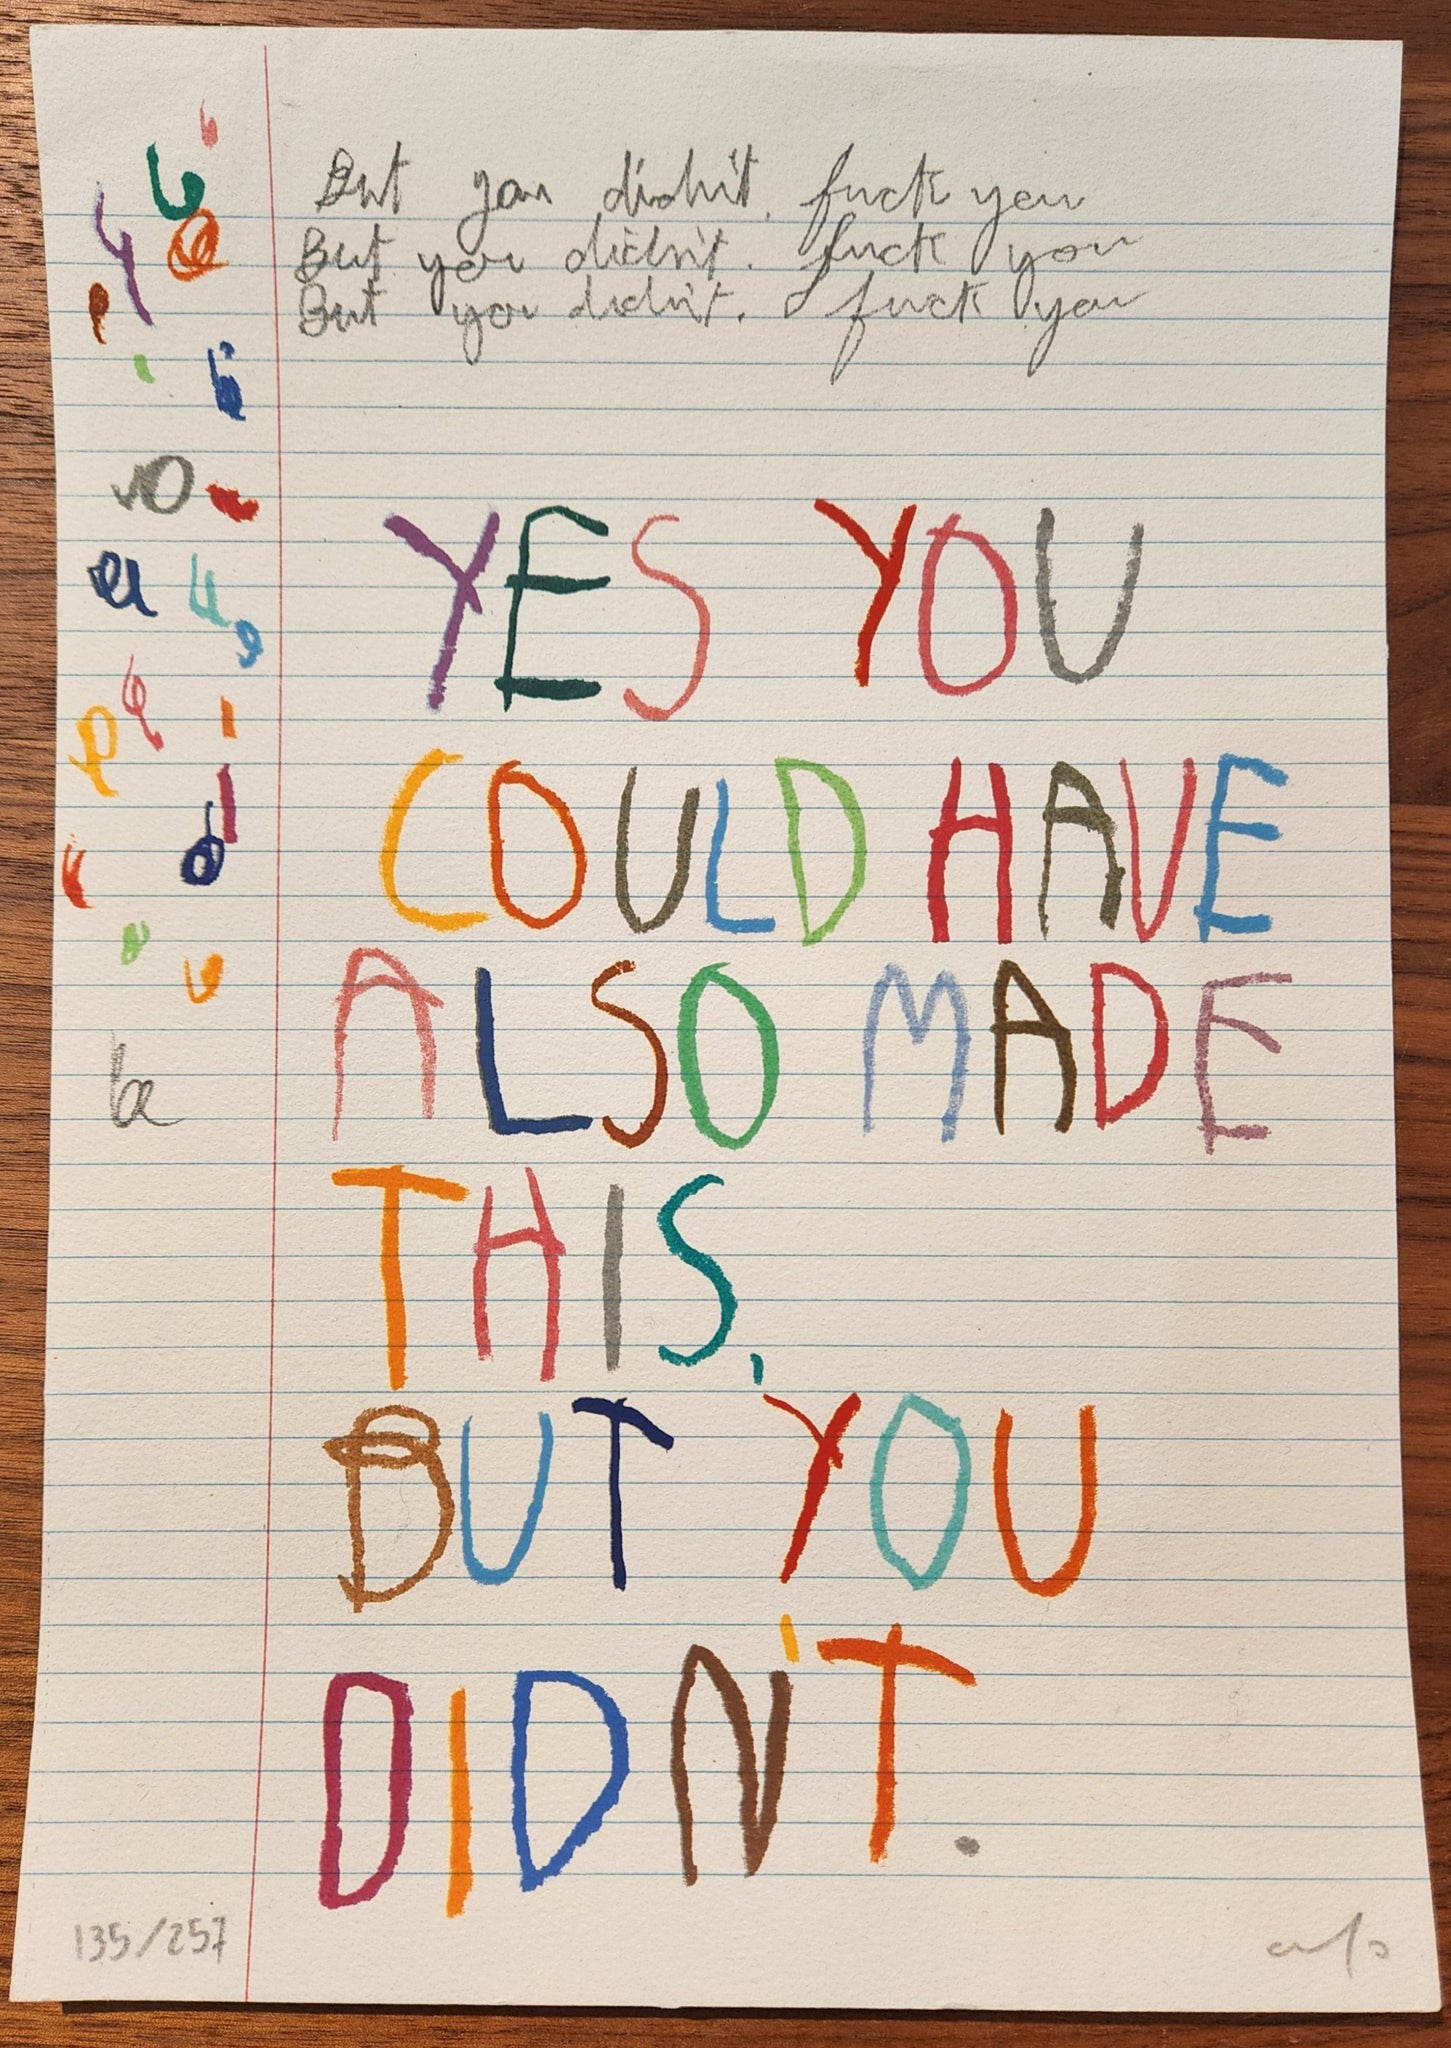 But you didn't. fuck you
But you didn't. fuck you
But you didn't. fuck you
YES YOU
COULD HAVE
ALSO MADE
THIS,
BUT YOU
DIDN'T.
135/257